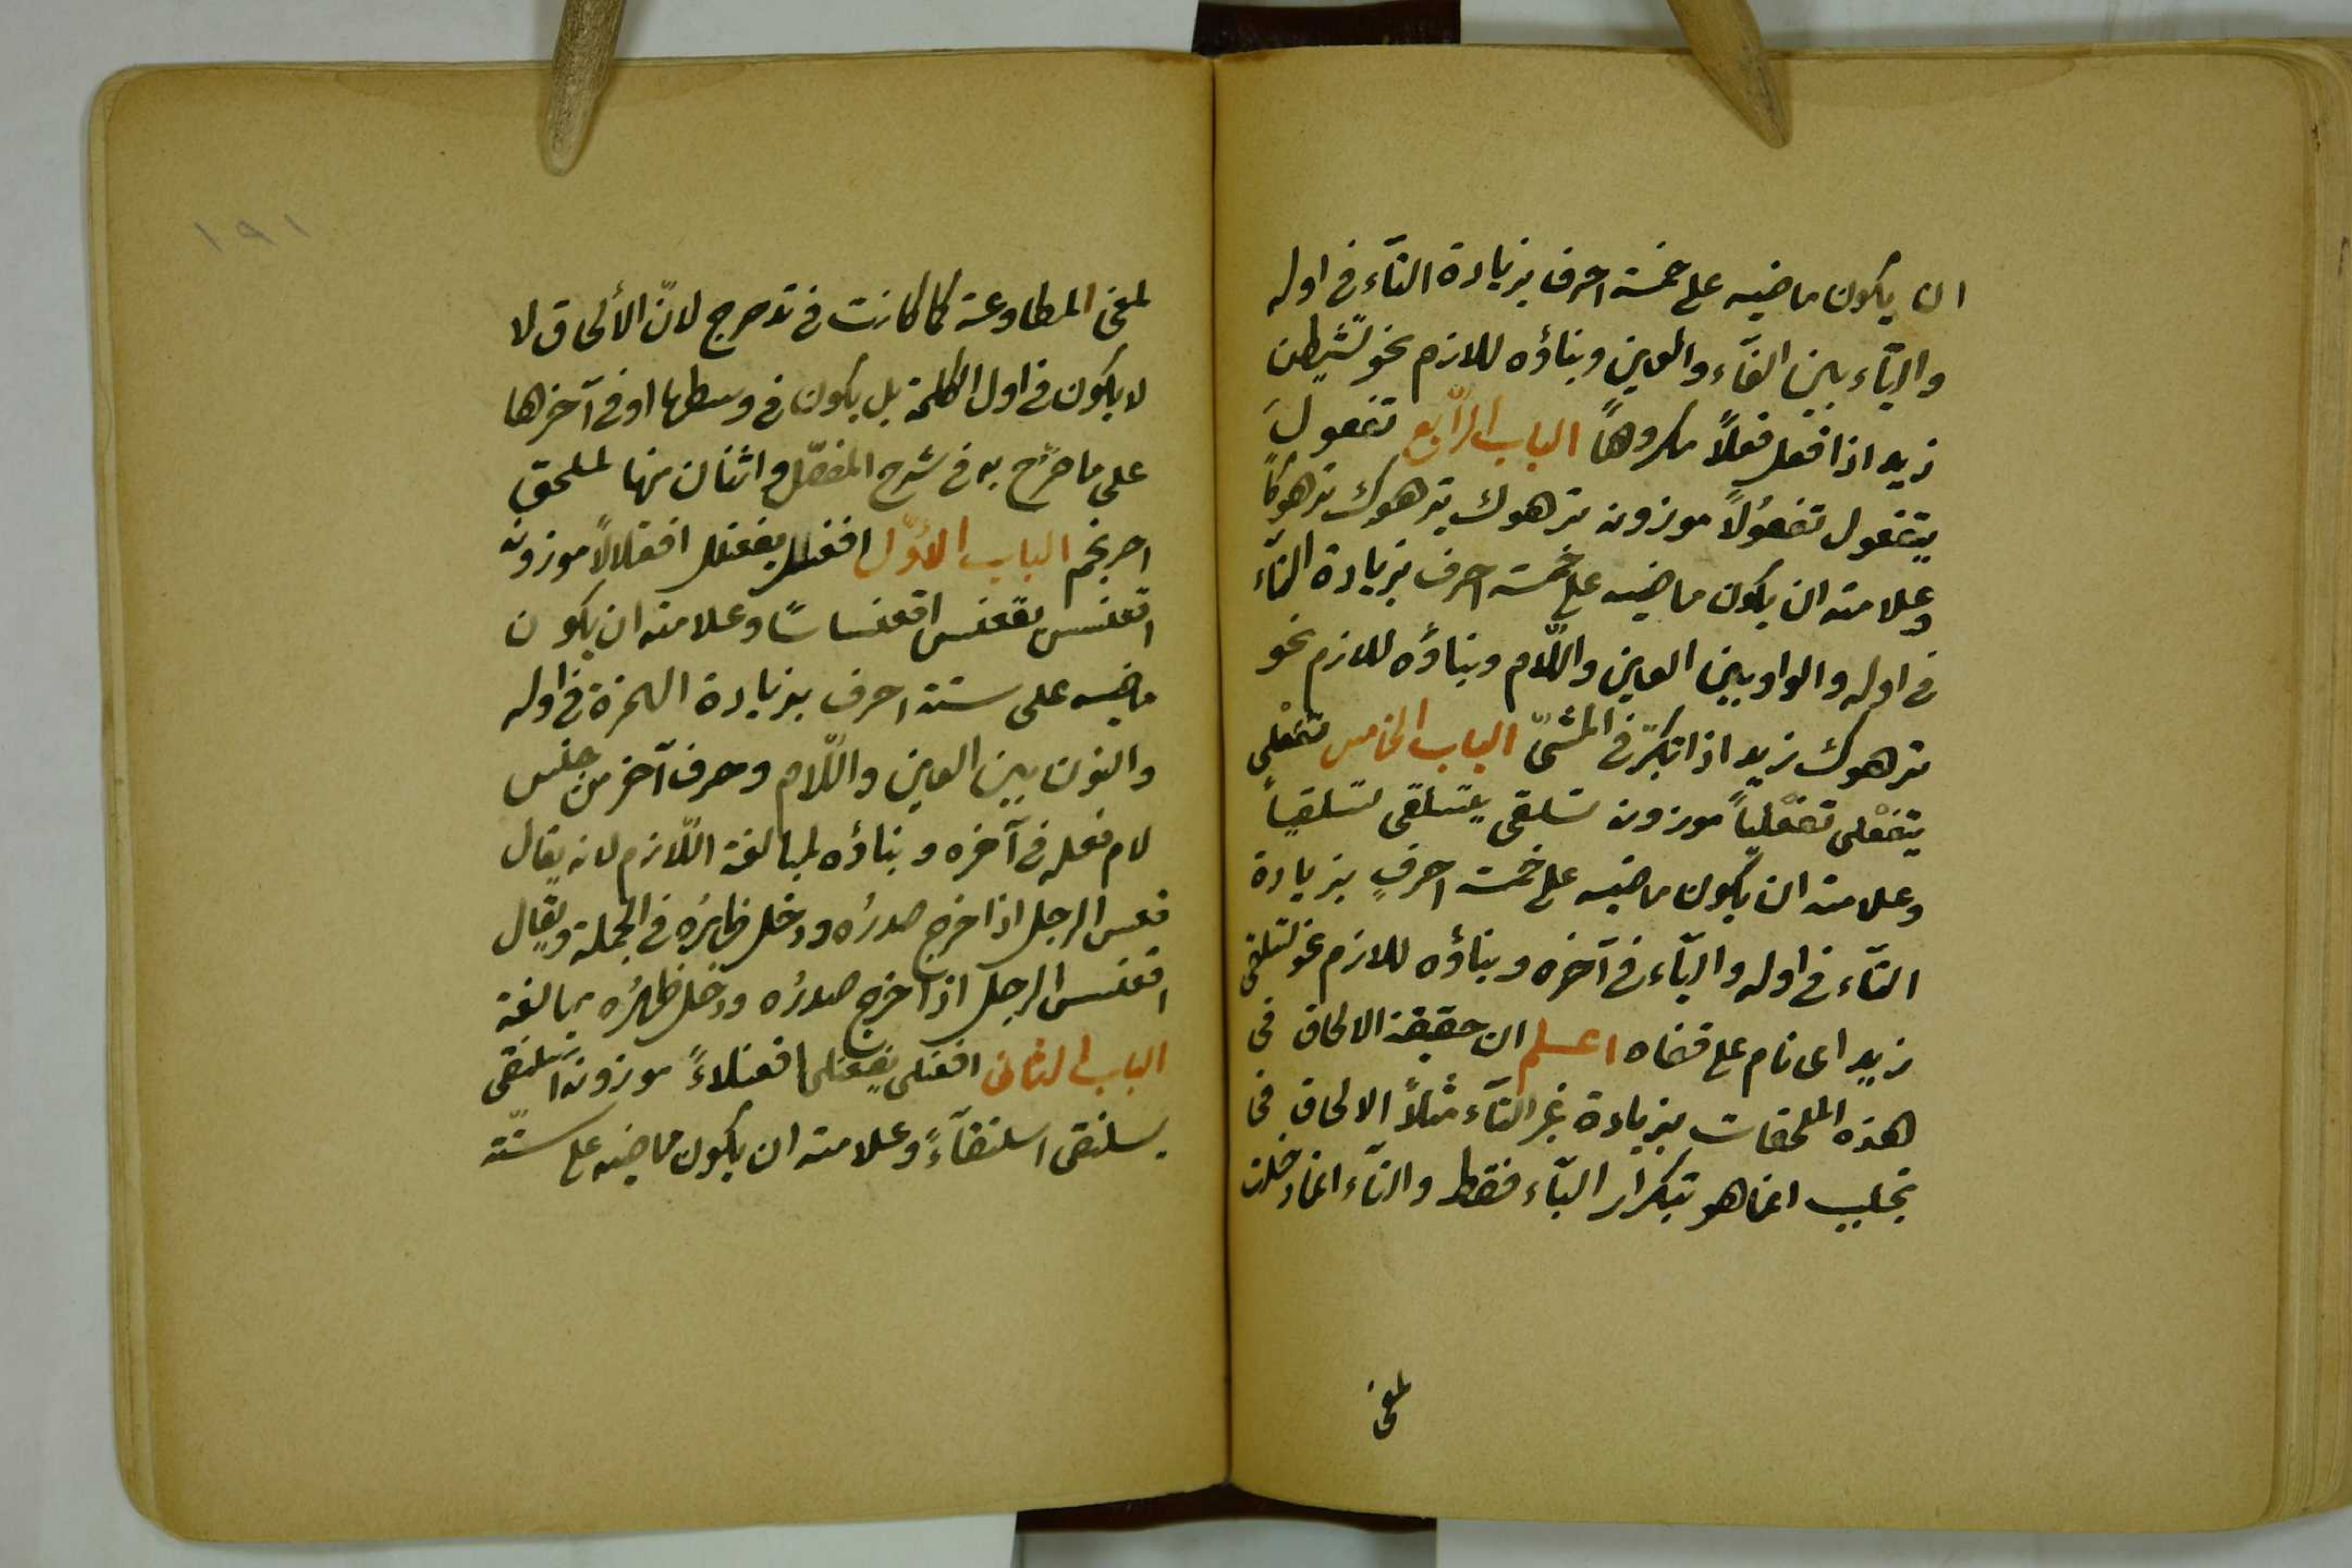 ان يكون ماضيه على خمسة احرف بزيادة التآء فى اوله
واليآء بين الفآء والعين وبناؤه للازم نحو تشيطن
زيد اذا فعل فعلاً مكروهاً الباب الرّابع تفعول
يتفعول تفعوُلاً موزونه ترهوك يترهوك ترهوكاً
وعلامته ان يكون ماضيه على خمسة احرف بزيادة التآء
فى اوله والواو بين العين واللّام وبناؤه للازم نحو
ترهوك زيد اذا تبكتر فى المشىّ الباب الخامس تفعْلى
يتفعْلى تفعْلياً موزونه تسلقى يتسلقى تسلقياً
وعلامته ان يكون ماضيه على خمسة احرفٍ بزيادة
التآء فى اوله واليآء فى آخره وبناؤه للازم نحو تسلقى
زيد اى نام على قفاه اعلم ان حقيقة الالحاق فى
هذه الملحقات بزيادة غير التآء مثلاً الالحاق فى
تجلبب انما هو بتكرار البآء فقط والتآء انما دخلت
لمعنى
١٩١
لمعنى المطاوعة كما كانت فى تدحرج لانّ الألحاق لا
لا يكون فى اول الكلمة بل يكون فى وسطها او فى آخرها
على ما صرّح به فى شرح المفصّل واثنان منها لملحق
احرنجم الباب الأوّل افعنلل يفعنلل افعنلالاً موزونه
اقعنسس يقعنسس اقعنساسًا وعلامته ان يكون
ماضيه على ستة احرف بزيادة الهمزة فى اوله
والنون بين العين واللّام وحرف آخر من جنس
لام فعله فى آخره وبناؤه لمبالغة اللّازم لانه يقال
قعس الرجل اذا خرج صدرُه ودخل ظهرُه فى الجملة ويقال
اقعنسس الرجل اذا خرج صدرُه ودخل ظهرُه مبالغة
الباب الثانى افعنلى يفعنلى افعنلاءً موزونه اسلنقى
يسلنقى اسلنقآءً وعلامته ان يكون ماضيه على ستّة